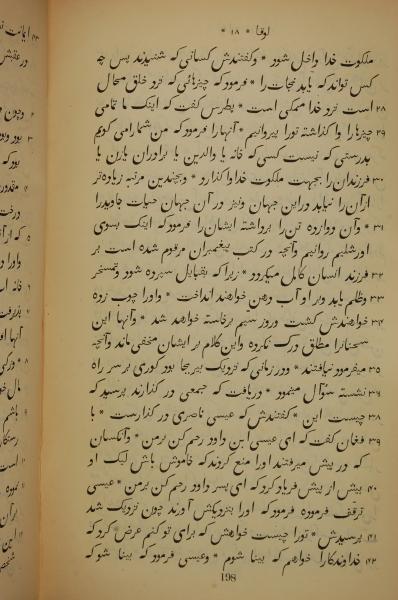 لوقا * ۱۸ *
ملکوت خدا داخل شود * وگفتندش کسانی که شنیدند پس چه
کس تواند که یابد نجات را * فرمود که چیزهائی که نزد خلق محال
۲۸ است نزد خدا ممکن است * پطرس گفت که اینک ما تمامی
۲۹ چیزها را وا گذاشته تورا پیروانیم * آنها را فرمود که من شما را می گویم
بدرستی که نیست کسی که خانه یا والدین یا برادران یا زن یا
۳۰ فرزندان را بجهت ملکوت خدا وا گذارد * وبچندین مرتبه زیاده‌تر
از آن را نیابد در این جهان ونیز در آن جهان حیات جاویدرا
۳۱ * وآن دوازده تن را برداشته ایشان را فرمود که اینک بسوی
اورشلیم روانیم وآنچه در کتب پیغمبران مرقوم شده است بر
۳۲ فرزند انسان کامل میگردد * زیرا که بقبایل سپرده شود وتمسخر
۳۳ وظلم یابد وبر او آب دهن خواهند انداخت * واورا چوب زده
۳۴ خواهندش کشت ودر روز سیم برخاسته خواهد شد * وآنها این
سخنانرا مطلق درک نکرده واین کلام بر ایشان مخفی ماند وآنچه
۳۵ میفرمود نیافتند * ودر زمانی که نزدیک بیریحا بود کوری بر سر راه
۳۶ نشسته سؤال مینمود * دریافت که جمعی در گذارند پرسید که
۳۸ چیست این * گفتندش که عیسی ناصری در گذار است * با
۳۹ فغان گفت که ای عیسی ابن داود رحم کن بر من * وآنکسان
که در پیش میرفتند اورا منع کردند که خاموش باش لیک او
۴۰ بیش از پیش فریاد کرد که ای پسر داود رحم کن بر من * عیسی
توقف فرموده فرمود که اورا بنزدیکش آورند چون نزدیک شد
۴۱ پرسیدش * تورا چیست خواهش که برای تو کنم عرض کرد که
۴۲ خداوندگارا خواهم که بینا شوم * وعیسی فرمود که بینا شو که
198